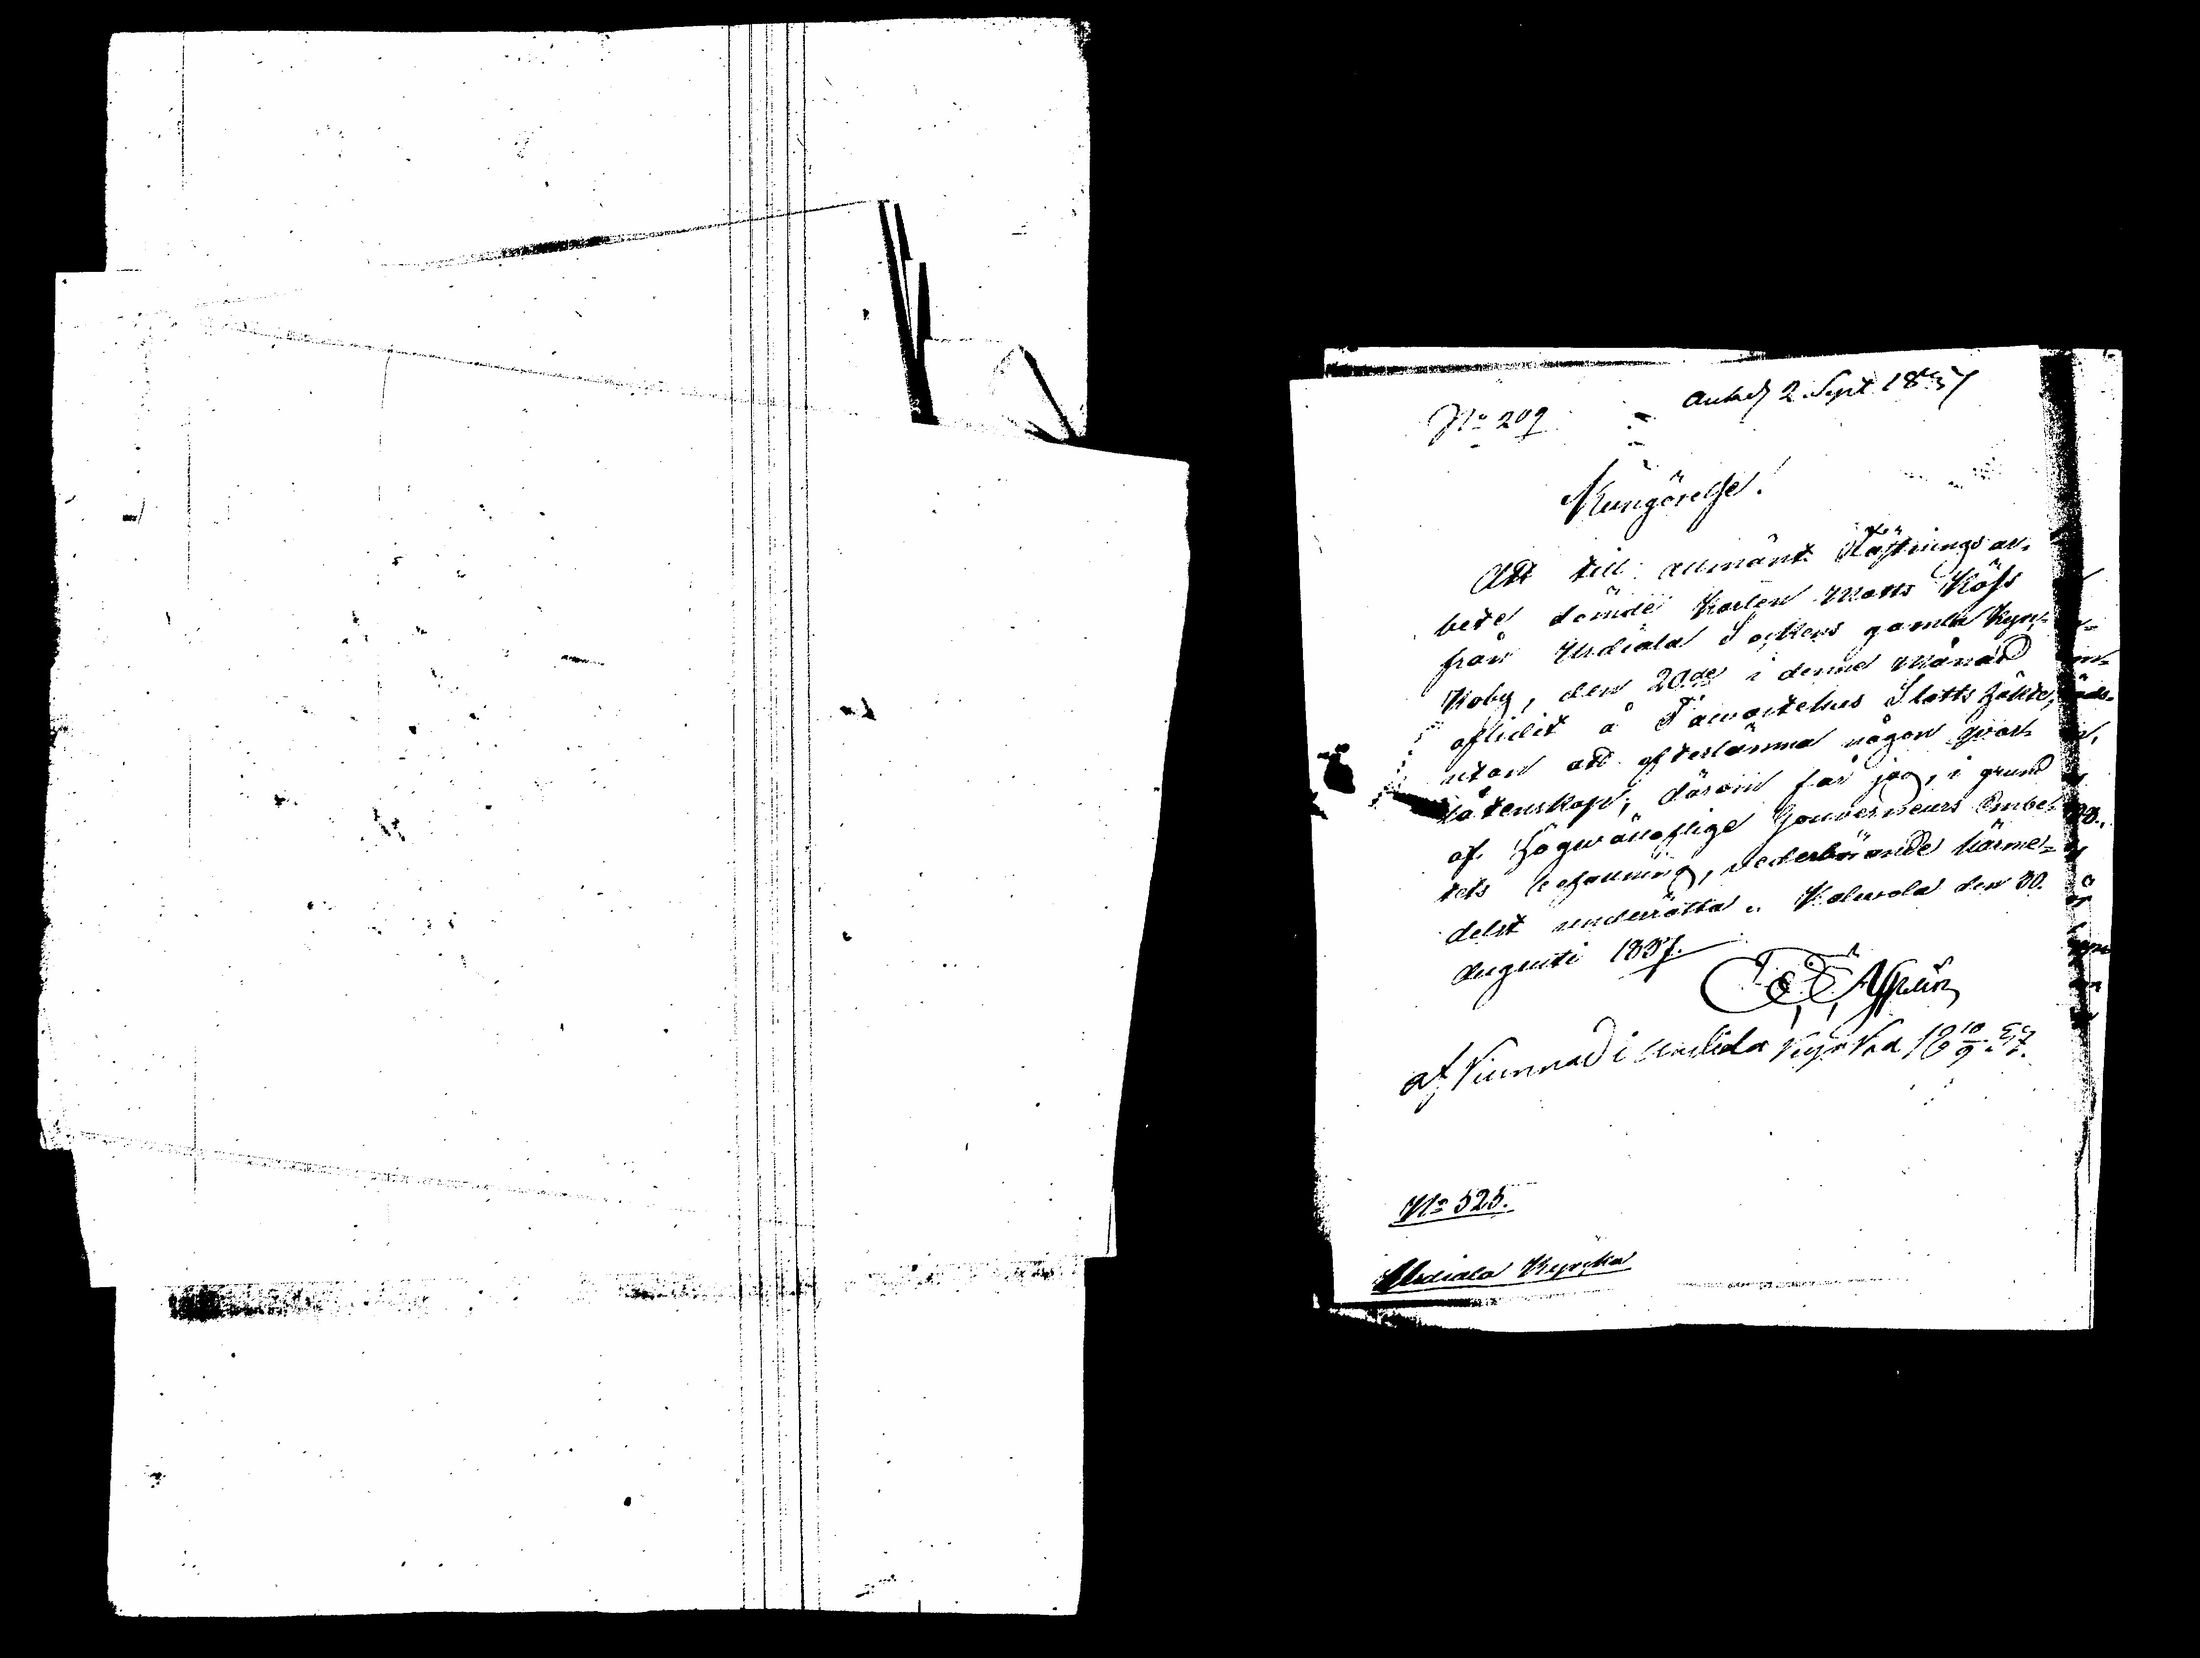 No 209
ank. d 2 Sept 1837
Kungörelse.
Att till allmänt Fästnings ar-
bete dömde Karlen Matts Köss
från Urdiala Sockens gamla Kyr-
koby, den 20de i denne Månad
aflidit å Tavastehus Slotts häkte,
utan att efterlämna någon qvar-
låtenskap, därom får jag, i grund
af Högvällofliga Gouverneurs Embe-
tets befallning, vederbörande härme-
delst underrätta. Kalvola den 30.
Augusti 1837.
af Kunnad i Urdiala Kyrka d 10/9 37.
No 525.
Urdiala Kyrka